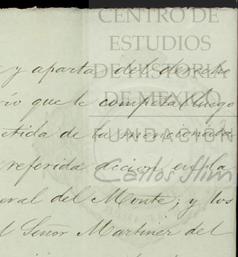 CENTRO DE
ESTUDIOS
DE HISTORIA
DE MEXICO
FUNDACIÓN
Carlos Slim
y aparta del derecho
que le competa luego
etida de la mencionada
referida
oral del Monte; y los
l Señor Martinez del